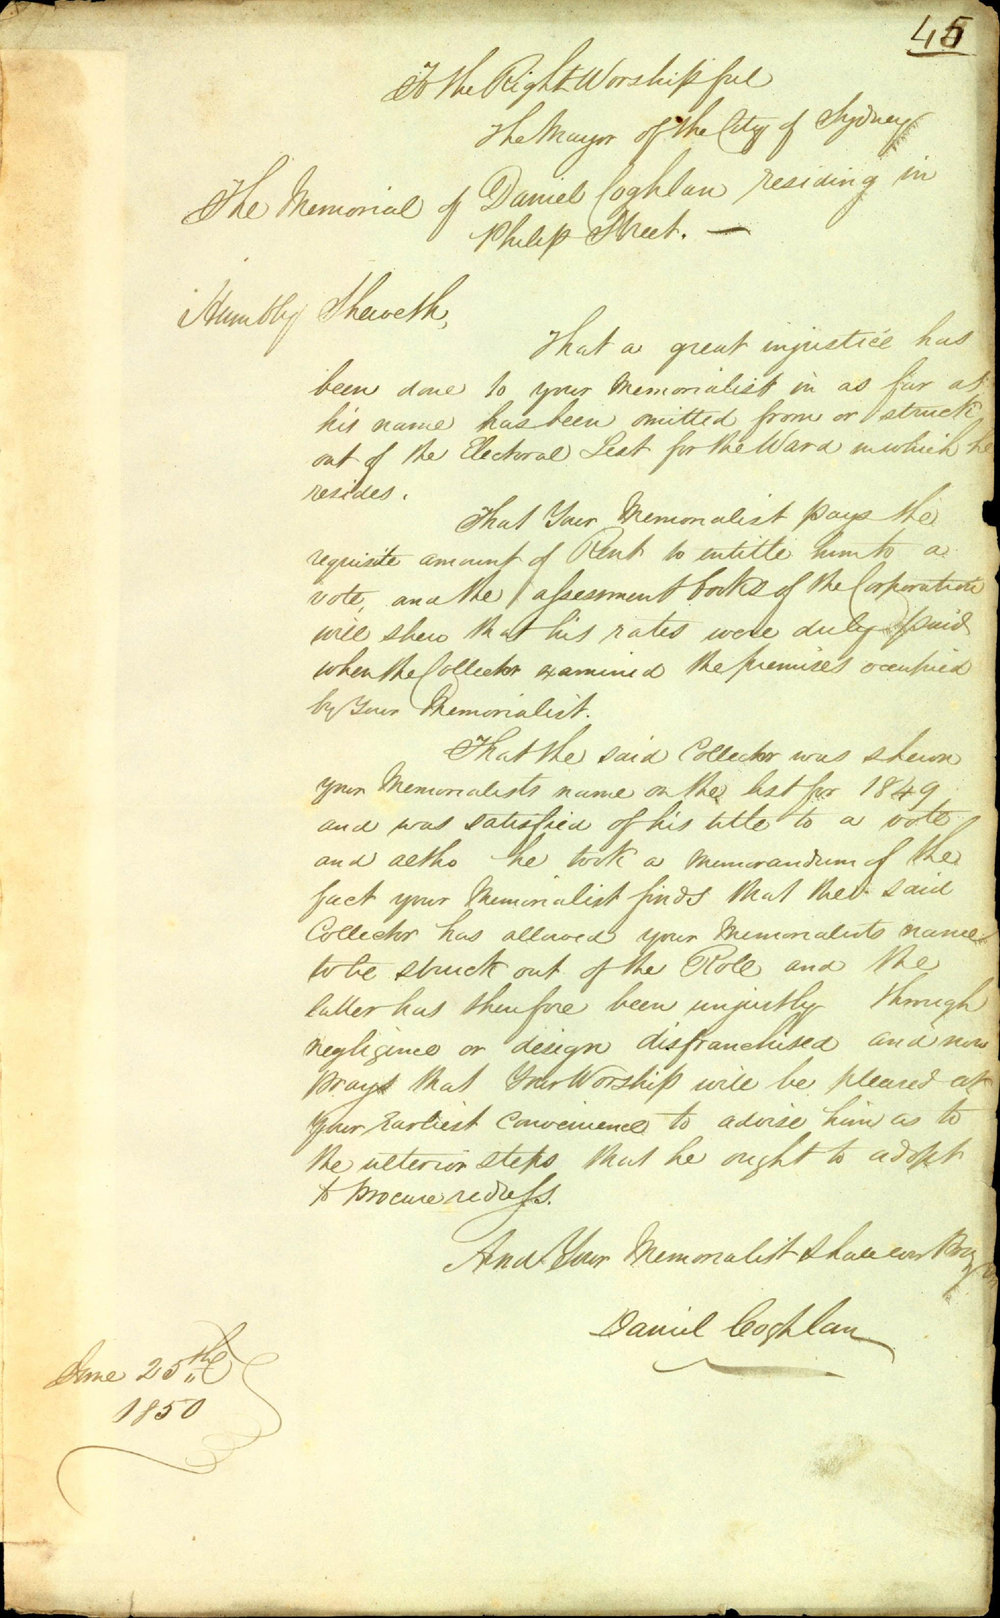 45
To the Right Worshipful
The Mayor of the City of Sydney
The Memorial of Daniel Coghlan residing in
Philip Street. —
Humbly Sheweth,
That a great injustice has
been done to your Memorialist in as far as
his name has been omitted from or struck
out of the Electoral List for the Ward in which he
resides.
That Your Memorialist pays the
requisite amount of Rent to entitle him to a
vote, and the assessment books of the Corporation
will shew that his rates were duly paid
when the Collector examined the premises occupied
by Your Memorialist.
That the said Collector was shewn
your Memorialists name on the list for 1849
and was satisfied of his title to a vote
and altho he took a memorandum of the
fact your Memorialist finds that the said
Collector has allowed your Memorialists name
to be struck out of the Roll and the
latter has therefore been unjustly through
negligence or design disfranchised and now
prays that Your Worship will be pleased at
your earliest convenience to advise him as to
the ulterior steps that he ought to adopt
to procure redress.
And Your Memorialist shall ever Pray
Daniel Coghlan
June 25th
1850